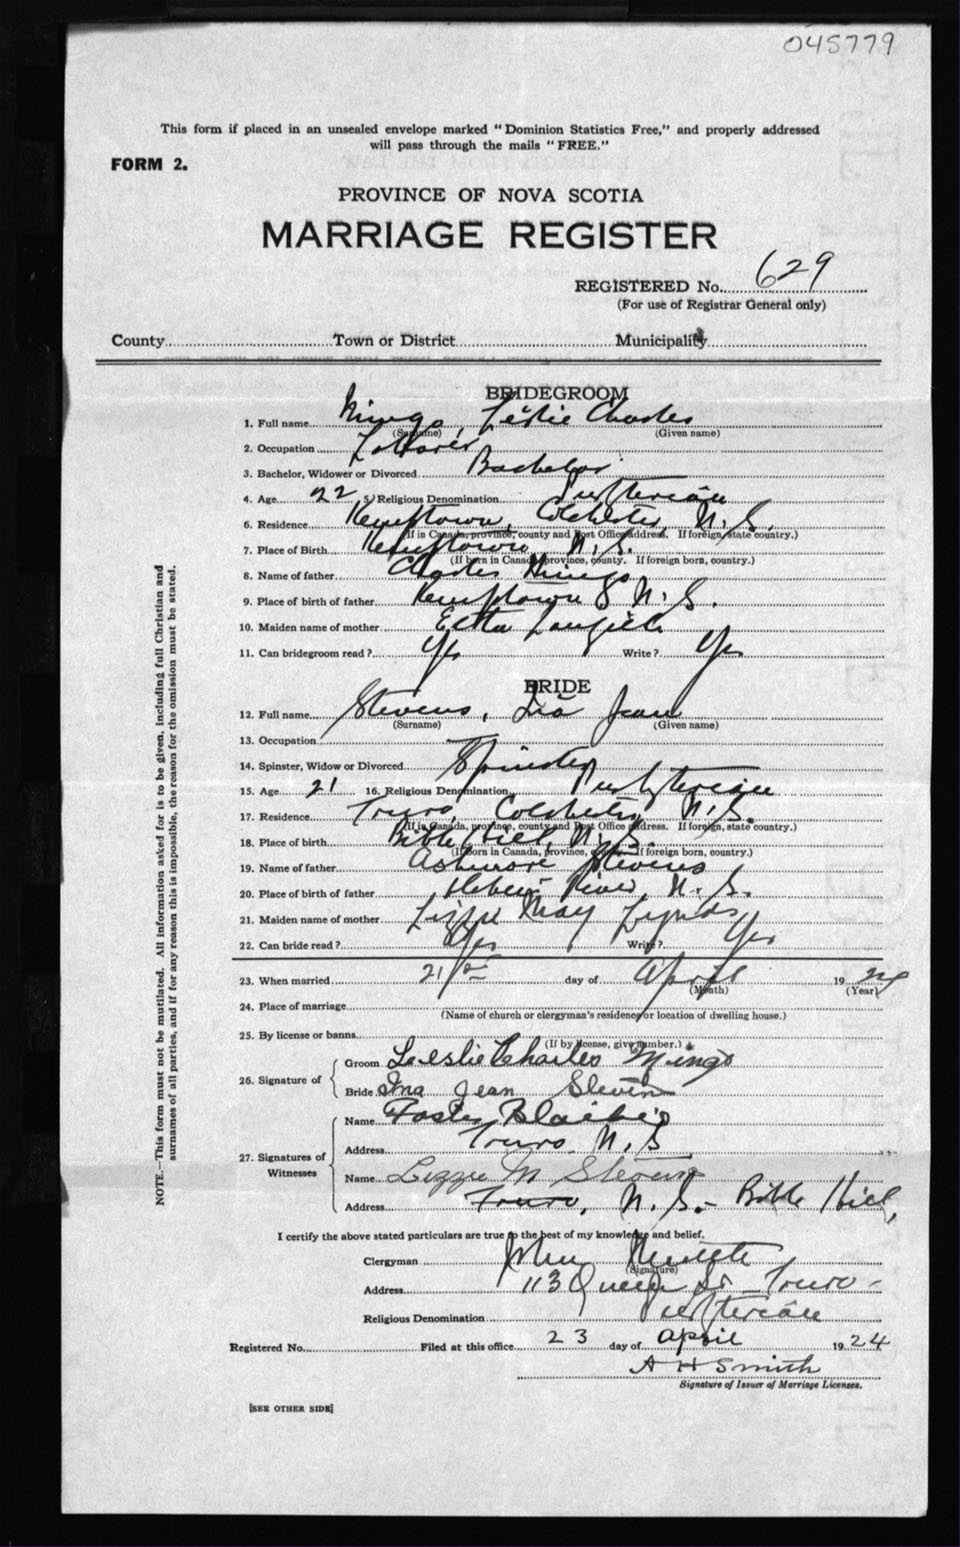 045779
This form if placed in an unsealed envelope marked "Dominion Statistics Free," and properly addressed
will pass through the mails "FREE."
FORM 2.
PROVINCE OF NOVA SCOTIA
MARRIAGE REGISTER
REGISTERED No. 629
(For use of Registrar General only)
County Town or District Municipality
BRIDEGROOM
1. Full name Mingo, Leslie Charles
(Surname) (Given name)
2. Occupation Laborer
3. Bachelor, Widower or Divorced Bachelor
4. Age 22 5. Religious Denomination Presbyterian
6. Residence Kemptown, Colchester, N.S.
(If in Canada, province, county and Post Office address. If foreign, state country.)
7. Place of Birth Kemptown, N.S.
(If born in Canada, province, county. If foreign born, country.)
8. Name of father Charles Mingo
9. Place of birth of father Kemptown N.S.
10. Maiden name of mother Etta
11. Can bridegroom read? Yes Write? Yes
BRIDE
12. Full name Stevens, Ina Jean
(Surname) (Given name)
13. Occupation
14. Spinster, Widow or Divorced Spinster
15. Age 21 16. Religious Denomination Presbyterian
17. Residence Truro, Colchester, N.S.
(If in Canada, province, county and Post Office address. If foreign, state country.)
18. Place of birth Bible Hill, N.S.
(If born in Canada, province, county. If foreign born, country.)
19. Name of father Ashmore Stevens
20. Place of birth of father River, N.S.
21. Maiden name of mother Lizzie May Lynds
22. Can bride read? Yes Write? Yes
23. When married 21st day of April 1924
(Month) (Year)
24. Place of marriage
(Name of church or clergyman's residence or location of dwelling house.)
25. By license or banns
(If by license, give number.)
26. Signature of Groom Leslie Charles Mingo
Bride Ina Jean Steven
27. Signatures of Witnesses Name Foster Blaikie
Address Truro N.S
Name Lizzie M Stevens
Address Truro, N.S.- Bible Hill,
I certify the above stated particulars are true to the best of my knowledge and belief.
Clergyman John
(Signature)
Address 113 Queen St Truro-
Religious Denomination Presbyterian
Registered No. Filed at this office 23 day of April 1924
A H Smith
Signature of Issuer of Marriage Licenses.
[SEE OTHER SIDE]
NOTE.—This form must not be mutilated. All information asked for is to be given, including full Christian and
surnames of all parties, and if for any reason this is impossible, the reason for the omission must be stated.